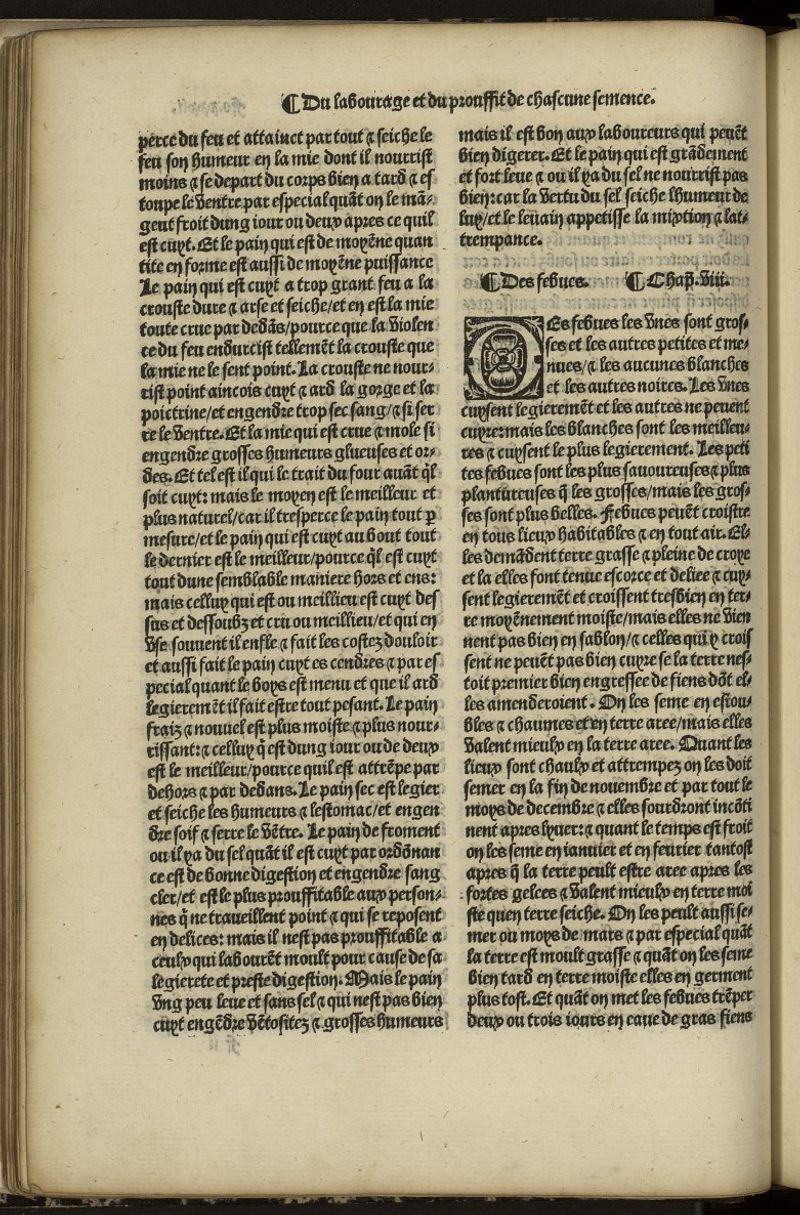 ¶ Du labourage et du prouffit de chascune semence.
perce du feu et attainct par tout ⁊ seiche le
feu son humeur en la mie dont il nourrist
moins ⁊ se depart du corps bien a tard ⁊ es
toupe le ventre par especial quāt on le mā-
geut froit dung iour ou deux apres ce quil
est cuyt. Et le pain qui est de moyēne quan
tite en forme est aussi de moyēne puissance
Le pain qui est cuyt a trop grant feu a la
crouste dure ⁊ arse et seiche/et en est la mie
toute crue par dedās/pource que la violen
ce du feu endurcist tellemēt la crouste que
la mie ne le sent point. La crouste ne nour-
rist point aincois cuyt ⁊ ard la gorge et la
poictrine/et engendre trop sec sang/⁊ si ser
re le ventre. Et la mie qui est crue ⁊ mole si
engendre grosses humeurs glueuses et or-
des. Et tel est il qui le trait du four auāt q̄l
soit cuyt: mais le moyen est le meilleur et
plus naturel/car il tresperce le pain tout ꝑ
mesure/et le pain qui est cuyt au bout tout
le dernier est le meilleur/pource q̄l est cuyt
tout dune semblable maniere hors et ens:
mais celluy qui est ou meillieu est cuyt des
sus et dessoubz et cru ou meillieu/et qui en
vse souuent il enfle ⁊ fait les costez douloir
et aussi fait le pain cuyt es cendres ⁊ par es
pecial quant le boys est menu et que il ard
legieremēt il fait estre tout pesant. Le pain
fraiz ⁊ nouuel est plus moiste ⁊ plus nour-
rissant: ⁊ celluy q̄ est dung iour ou de deux
est le meilleur/pource quil est attrēpe par
dehors ⁊ par dedans. Le pain sec est legier
et seiche les humeurs ⁊ lestomac/et engen
dre soif ⁊ serre le vētre. Le pain de froment
ou il ya du sel quāt il est cuyt par ordōnan
ce est de bonne digestion et engendre sang
cler/et est le plus prouffitable aux person-
nes q̄ ne traueillent point ⁊ qui se reposent
en delices: mais il nest pas prouffitable a
ceulx qui labourēt moult pour cause de sa
legierete et preste digestion. Mais le pain
vng peu leue et sans sel ⁊ qui nest pas bien
cuyt engēdre vētositez ⁊ grosses humeurs
mais il est bon aux laboureurs qui peuēt
bien digerer. Et le pain qui est grādement
et fort leue ⁊ ou il ya du sel ne nourrist pas
bien: car la vertu du sel seiche lhumeur de
luy/et le leuain appetisse la mixtion ⁊ lat-
trempance.
¶ Des febues. ¶ Chap. viii.
DEs febues les vnes sont gros-
ses et les autres petites et me-
nues/⁊ les aucunes blanches
et les autres noires. Les vnes
cuysent legieremēt et les autres ne peuent
cuyre: mais les blanches sont les meilleu-
res ⁊ cuysent le plus legierement. Les peti
tes febues sont les plus sauoureuses ⁊ plus
plantureuses q̄ les grosses/mais les gros-
ses sont plus belles. Febues peuēt croistre
en tous lieux habitables ⁊ en tout air. El-
les demādent terre grasse ⁊ pleine de croye
et la elles font tenue escorce et deliee ⁊ cuy-
sent legieremēt et croissent tresbien en ter-
re moyēnement moiste/mais elles ne vien
nent pas bien en sablon/⁊ celles qui y crois
sent ne peuēt pas bien cuyre se la terre nes-
toit premier bien engressee de fiens dōt el-
les amenderoient. On les seme en estou-
bles ⁊ chaumes et en terre aree/mais elles
valent mieulx en la terre aree. Quant les
lieux sont chaulx et attrempez on les doit
semer en la fin de nouembre et par tout le
moys de decembre ⁊ elles sourdront incōti
nent apres lyuer: ⁊ quant le temps est froit
on les seme en ianuier et en feurier tantost
apres q̄ la terre peult estre aree apres les
fortes gelees ⁊ valent mieulx en terre moi
ste quen terre seiche. On les peult aussi se-
mer ou moys de mars ⁊ par especial quāt
la terre est moult grasse ⁊ quāt on les seme
bien tard en terre moiste elles en germent
plus tost. Et quāt on met les febues trēper
deux ou trois iours en eaue de gras fiens